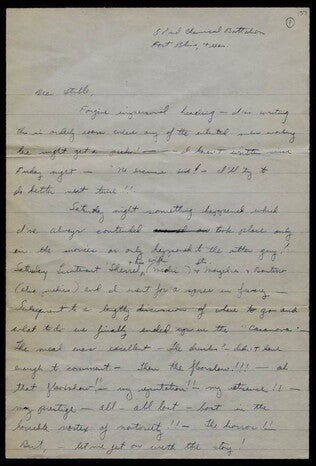 1
Chemical Battalion
Fort Bliss, Texas
Dear Stelle,
Forgive impersonal heading — I'm writing
this in orderly room where any of the enlisted men working
late might get a peek! — I haven't written since
Friday night — No excuses sir! — I'll try to
do better next time!!
Saturday night something happened which
I've always contended took place only
in the movies or only happened to the other guy!
Saturday Lieutenant
(also medics) and I went for a spree in Juarez —
Subsequent to a lengthy discussion of where to go and
what to do we finally ended up in the "Casanova".
The meal was excellent — The drinks? didn't have
enough to comment — Then the floorshow!!! — ah
that floorshow!! — my reputation!! — my!! —
my prestige — all — all lost — lost in the
horrible vortex of notoriety!! — the horror!!
But, let me get on with the story!